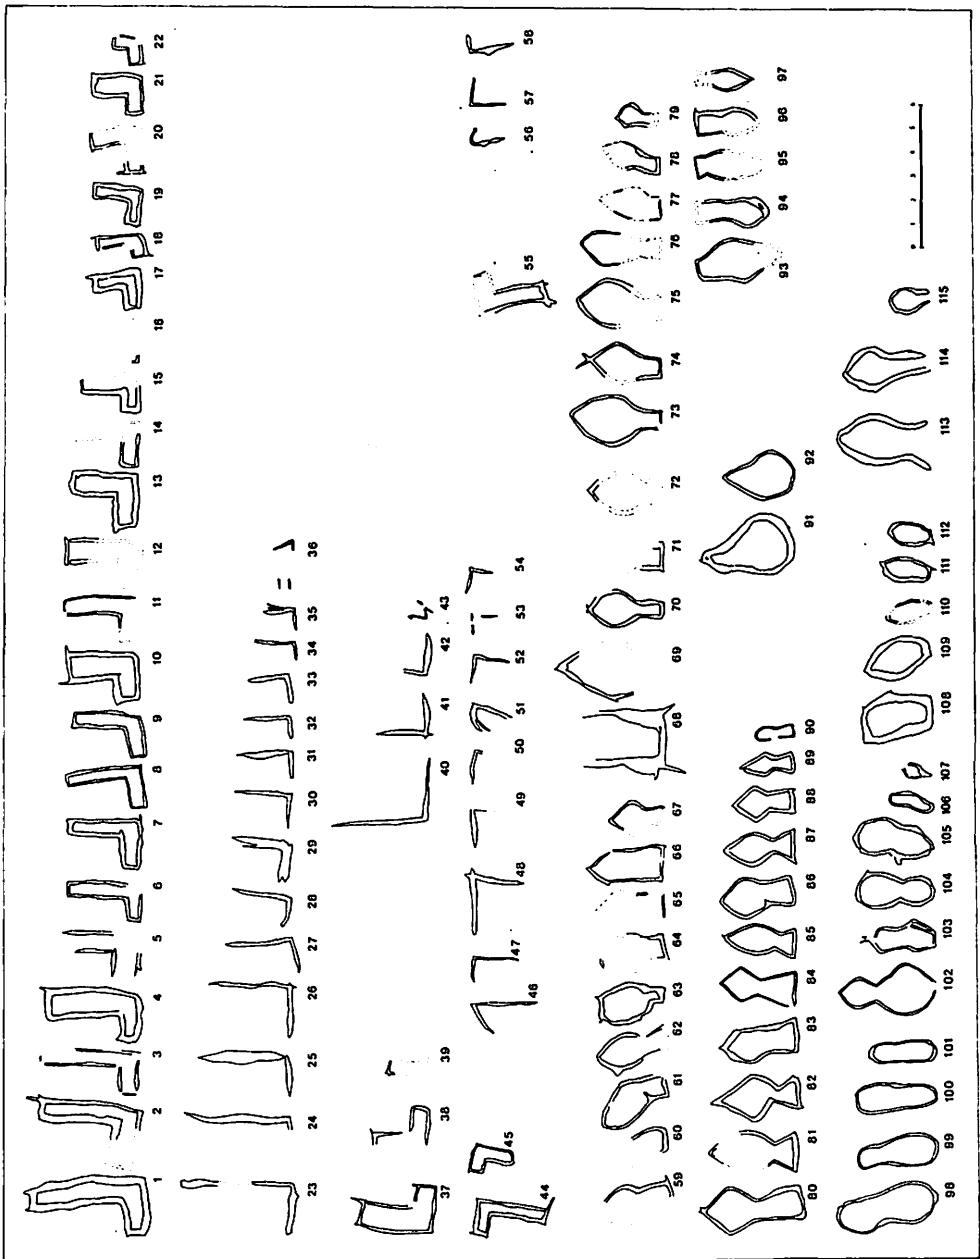 1 2 3 4 5 6 7 8 9 10 11 12 13 14 15 16 17 18 19 20 21 22
23 24 25 26 27 28 29 30 31 32 33 34 35 36
37 38 39 40 41 42 43
44 45 46 47 48 49 50 51 52 53 54 55 56 57 58
59 60 61 62 63 64 65 66 67 68 69 70 71 72 73 74 75 76 77 78 79
80 81 82 83 84 85 86 87 88 89 90 91 92 93 94 95 96 97
98 99 100 101 102 103 104 105 106 107 108 109 110 111 112 113 114 115